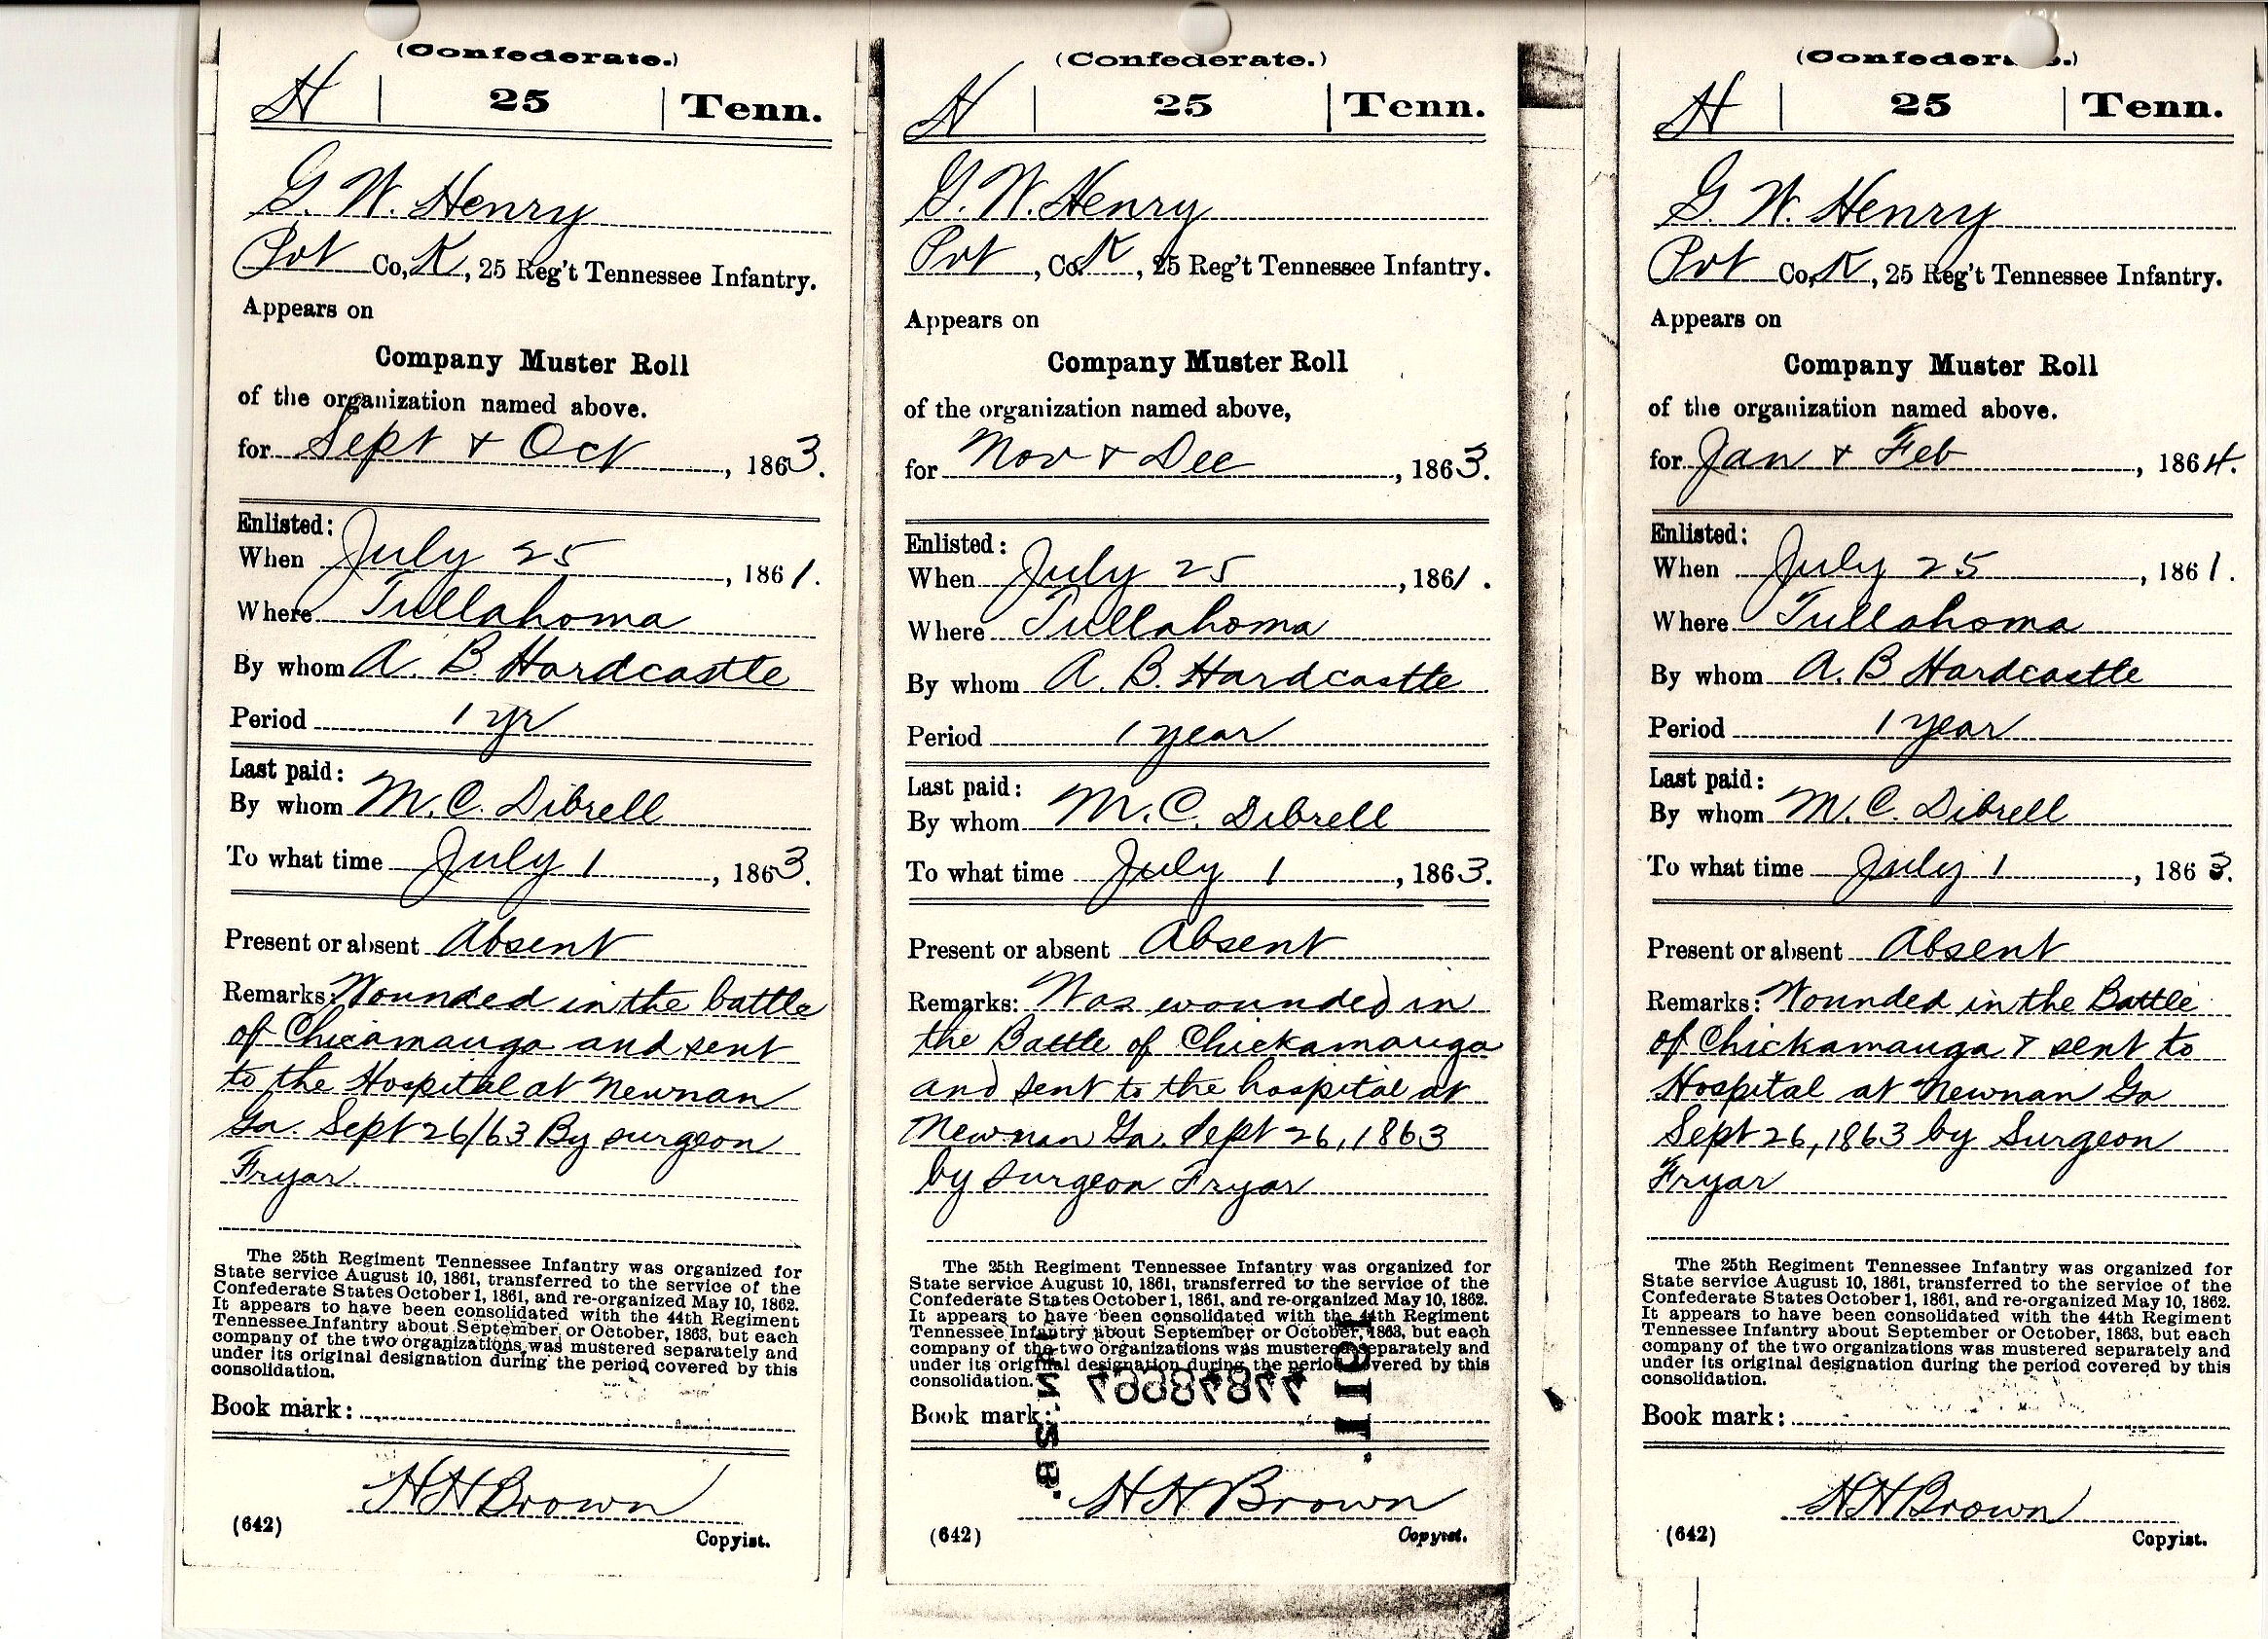 (Confederate.)
H | 25 | Tenn.
G. W. Henry
Pvt Co, K, 25 Reg't Tennessee Infantry.
Appears on
Company Muster Roll
of the organization named above.
for Sept & Oct, 1863.
Enlisted:
When July 25, 1861.
Where Tullahoma
By whom A. B. Hardcastle
Period 1 yr
Last paid:
By whom M. C. Dibrell
To what time July 1, 1863.
Present or absent Absent
Remarks: Wounded in the battle
of Chicamauga and sent
to the Hospital at Newnan
Ga. Sept 26/63 By surgeon
Fryar.
The 25th Regiment Tennessee Infantry was organized for
State service August 10, 1861, transferred to the service of the
Confederate States October 1, 1861, and re-organized May 10, 1862.
It appears to have been consolidated with the 44th Regiment
Tennessee Infantry about September or October, 1863, but each
company of the two organizations was mustered separately and
under its original designation during the period covered by this
consolidation.
Book mark:
H H Brown
(642)
Copyist.
(Confederate.)
H | 25 | Tenn.
G. W. Henry
Pvt, Co. K, 25 Reg't Tennessee Infantry.
Appears on
Company Muster Roll
of the organization named above,
for Nov & Dec, 1863.
Enlisted:
When July 25, 1861.
Where Tullahoma
By whom A. B. Hardcastle
Period 1 year
Last paid:
By whom M. C. Dibrell
To what time July 1, 1863.
Present or absent Absent
Remarks: Was wounded in
the Battle of Chickamauga
and sent to the hospital at
Newnan Ga. Sept 26, 1863
by surgeon Fryar
The 25th Regiment Tennessee Infantry was organized for
State service August 10, 1861, transferred to the service of the
Confederate States October 1, 1861, and re-organized May 10, 1862.
It appears to have been consolidated with the 44th Regiment
Tennessee Infantry about September or October, 1863, but each
company of the two organizations was mustered separately and
under its original designation during the period covered by this
consolidation.
Book mark:
H H Brown
(642)
Copyist.
(Confedera
H | 25 | Tenn.
G. W. Henry
Pvt Co, K, 25 Reg't Tennessee Infantry.
Appears on
Company Muster Roll
of the organization named above.
for Jan & Feb, 1864.
Enlisted:
When July 25, 1861.
Where Tullahoma
By whom A. B Hardcastle
Period 1 year
Last paid:
By whom M. C. Dibrell
To what time July 1, 1863.
Present or absent Absent
Remarks: Wounded in the Battle
of Chickamauga & sent to
Hospital at Newnan Ga
Sept 26, 1863 by Surgeon
Fryar
The 25th Regiment Tennessee Infantry was organized for
State service August 10, 1861, transferred to the service of the
Confederate States October 1, 1861, and re-organized May 10, 1862.
It appears to have been consolidated with the 44th Regiment
Tennessee Infantry about September or October, 1863, but each
company of the two organizations was mustered separately and
under its original designation during the period covered by this
consolidation.
Book mark:
H H Brown
(642)
Copyist.